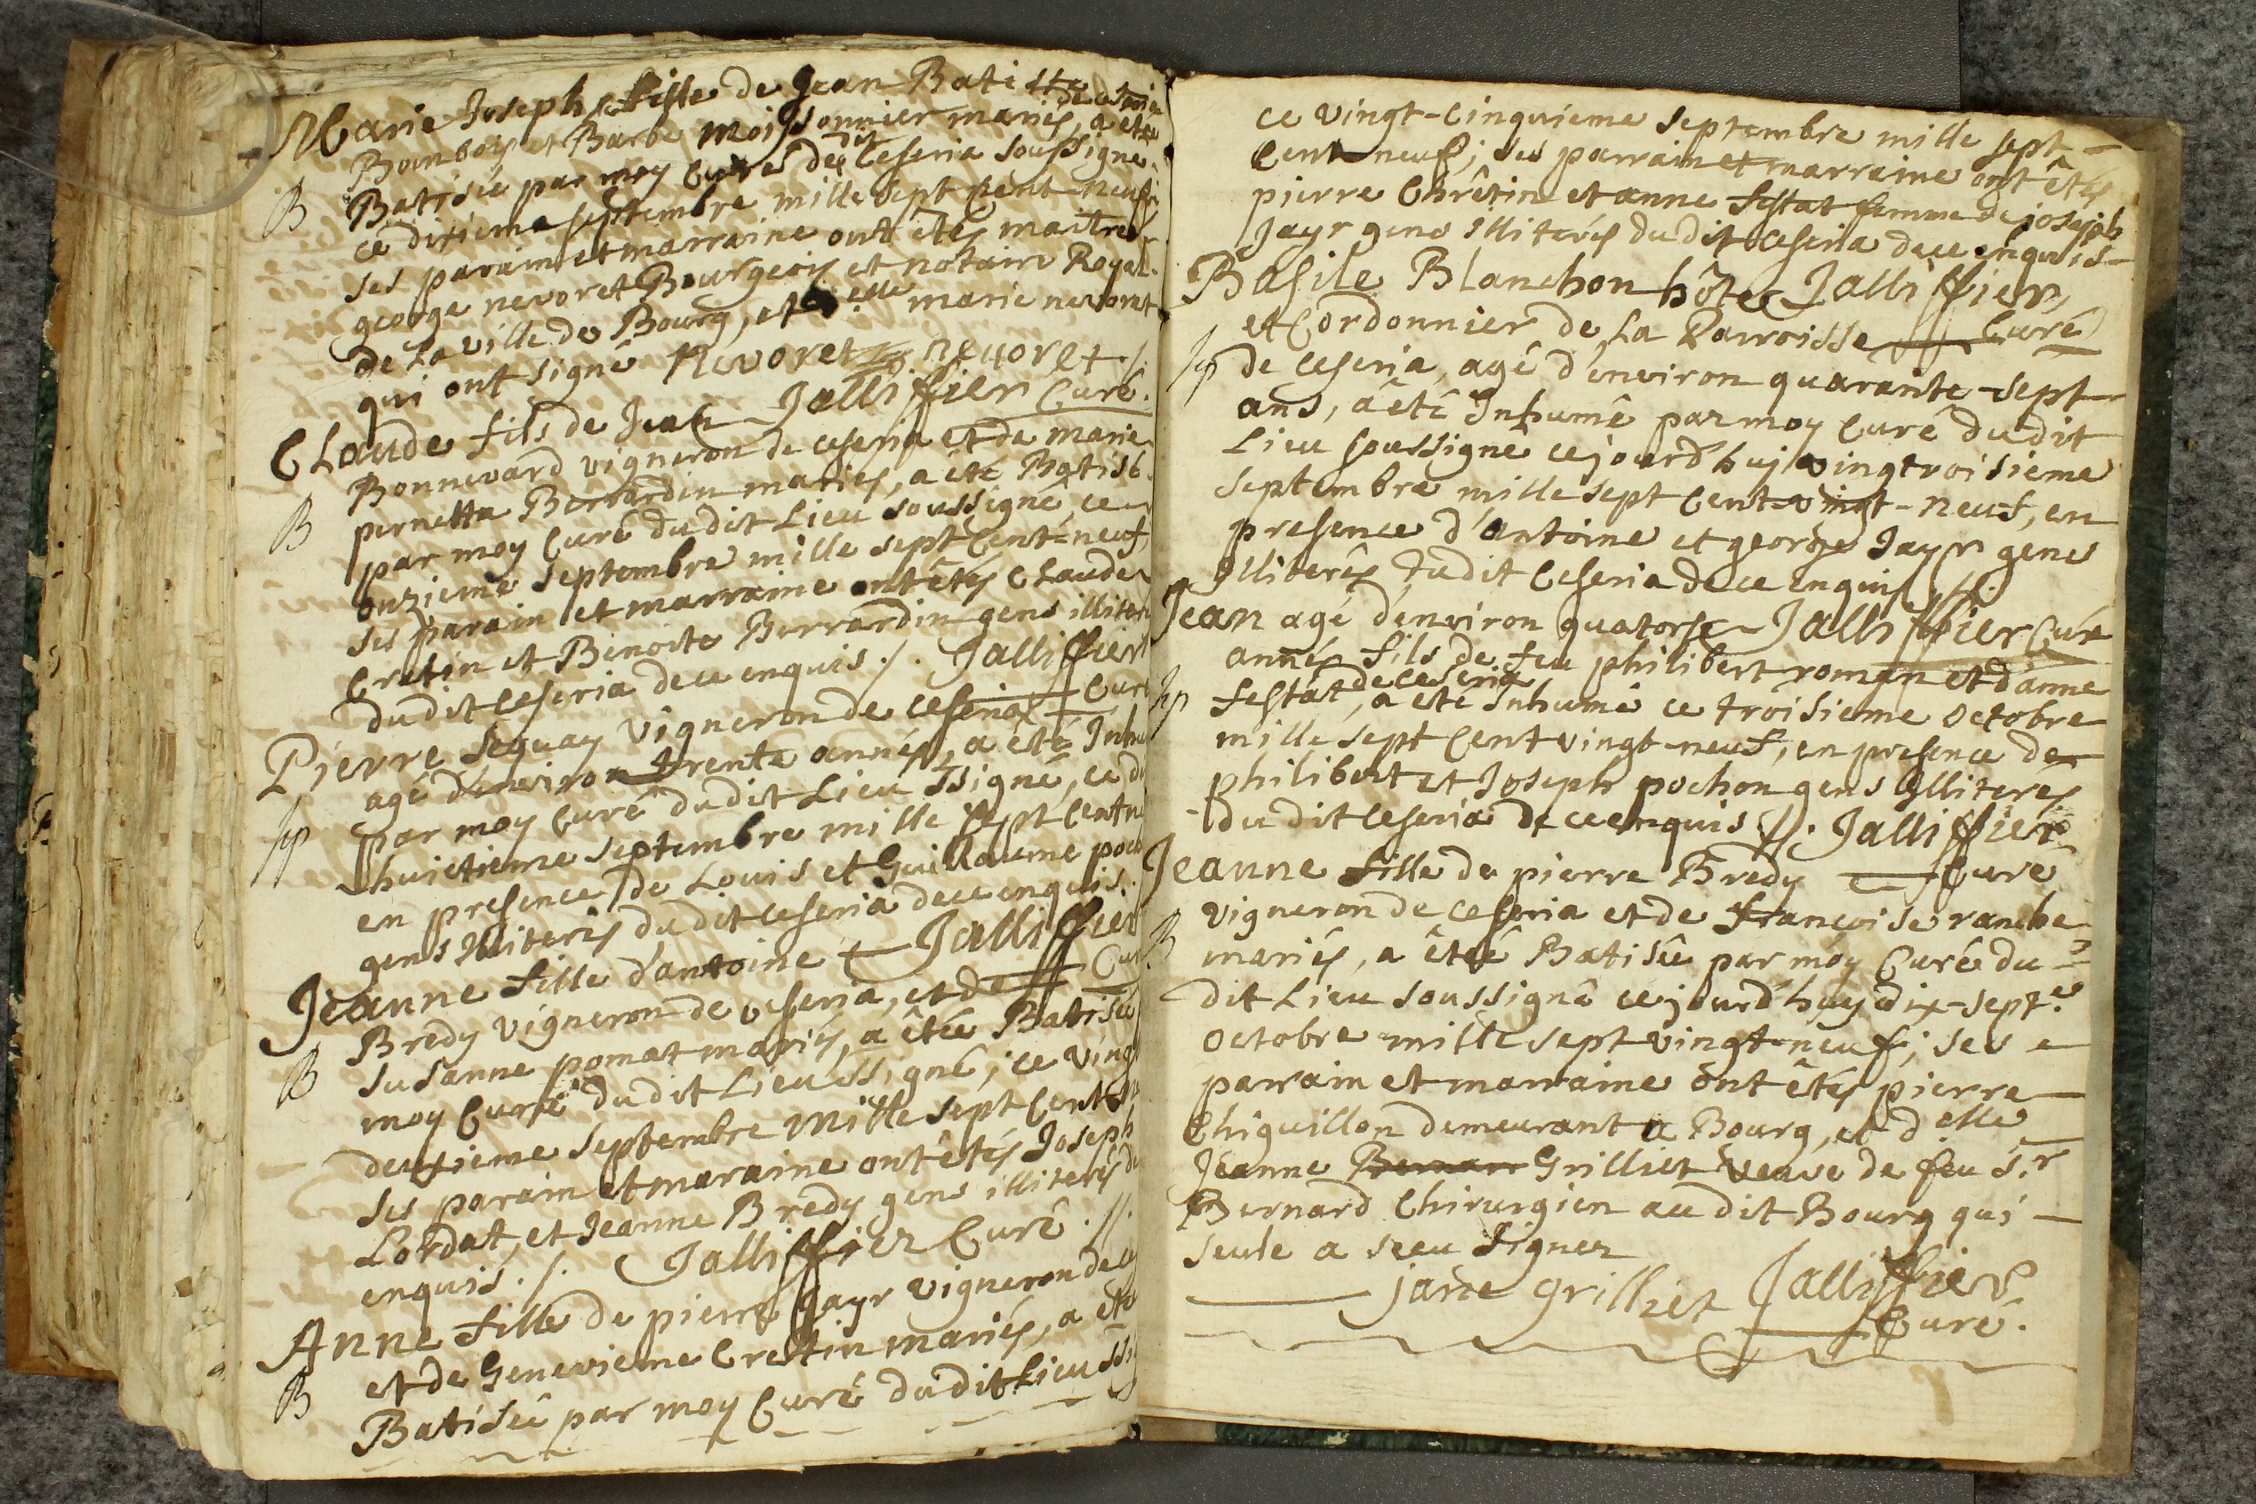 Marie Joseph fille de Jean Batiste
Bambois et Barbe Moissonnier mariés, a étée
B
Batisée par moy Curé de dit Ceseria soussigné
ce dixieme septembre mille sept cent neuf;
ses parain et marraine ont êtés maitre
george nevoret Bourgeois et notaire Royal
de la ville de Bourg, et elle marie nevoret
qui ont signé Nevoret nevoret ./.
Jalliffier Curé.
Claude fils de Jean
Bonnevard vigneron de ceseria et de marie
B
pernetta Berrardin mariés, a été Batisé
par moy Curé du dit Lieu soussigné, ce
onzieme septembre mille sept Cent-neuf,
ses parain et marraine ont êtés Claude
Cretin et Benoite Berrardin gens illiter
du dit Ceseria de ce enquis ./. Jalliffier
Curé
Pierre Sequay vigneron de ceseria
agé d'environ trente années, a été Inhu
sp
par moy Curé du dit Lieu ssigné, ce di
huictieme septembre mille sept Cent n
en presence de Louis et Guillaume poch
gens Illiterés du dit Ceseria de ce enquis.
Jalliffier
Cur
Jeanne fille d'antoine
Bredy vigneron de ceseria, et de
B
susanne pomat mariés, a êtée Batisée
moy Curé du dit Lieu ssigné; ce ving
deuxieme septembre Mille sept Cent
ses parain et maraine ont êtés Joseph
Lordat, et Jeanne Bredy gens illiterés du
enquis ./. Jalliffier Curé .//.
Anne fille de pierre Jayr vigneron de ce
et de Genevieme Crestin mariés, a éte
B
Batisée par moy Curé du dit Lieu ssi
ce vingt-Cinquieme septembre mille sept-
Cent neuf; ses parrain et marraine ont êtés
pierre Chrêtin et anne festat femme de joseph
Jayr gens illiterés du dit ceseria de ce enquis-
Jalliffier,
Curé
Basile Blanchon hôte
et Cordonnier de La Parroisse
sp
de Ceseria, agé d'environ quarante-sept
ans, a été Inhumê par moy Curé du dit
Lieu soussigné cejourd'huy vingtroisieme
septembre mille sept Cent vingt-neuf, en
presence d'antoine et george Jayr gens
Illiterés du dit Ceseria de ce enquis .//.
Jalliffier Curé
Jean agé d'environ quatorse
années fils de feu philibert roman et d'anne
de Ceseria
sp
festat, a eté Inhumé ce troisieme octobre
mille sept Cent vingt-neuf, en presence de
philibert et Joseph pochon gens Illiterés
du dit Ceseria de ce enquis .//. Jalliffier
Curé
Jeanne fille de pierre Bredy
vigneron de ceseria et de françoise ranche
B
mariés, a êtée Batisée par moy Curé du
dit Lieu soussigné cejourd'huy dix-sept.e
octobre mille sept vingt-neuf; ses
parrain et marraine ont êtés pierre
Chiquillon demeurant a Bourg, et d elle
Jeanne Bernarr Grilliet veuve de feu s.r
Bernard Chirurgien au dit Bourg qui
seule a sceu signer
jane grilliet Jalliffier
Curé.